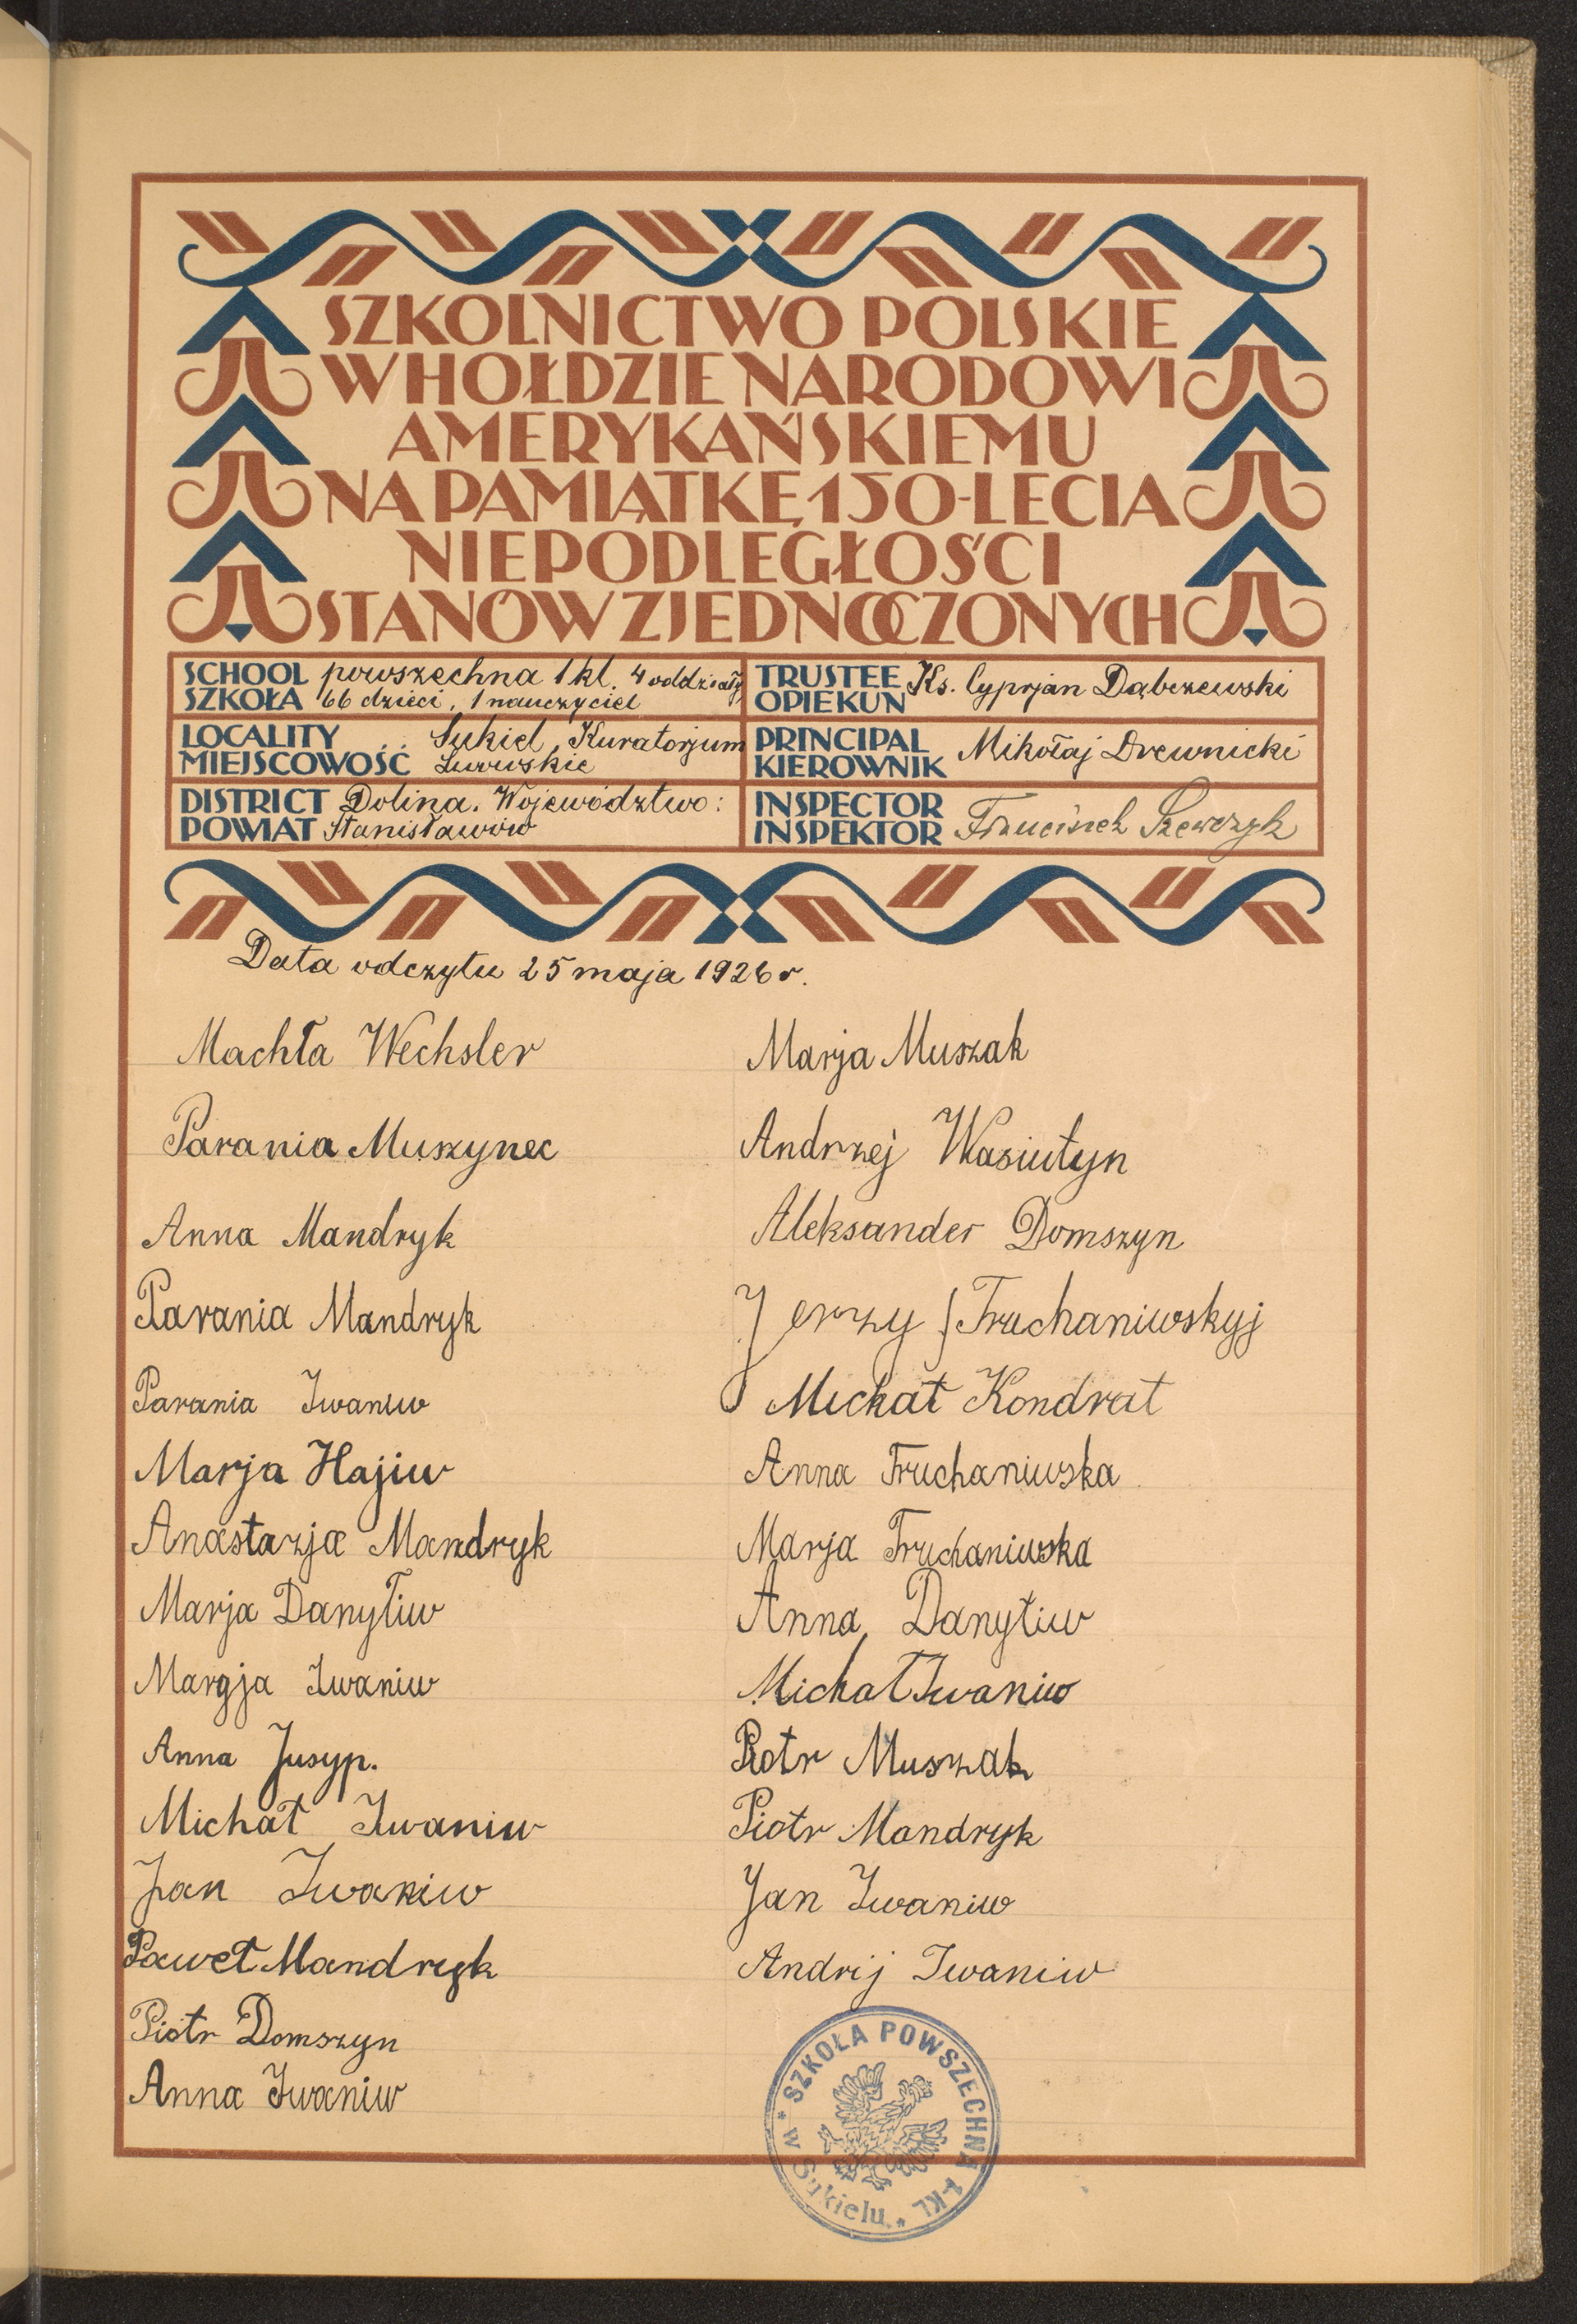 SZKOLNICTWO POLSKIE
W HOŁDZIE NARODOWI
AMERYKAŃSKIEMU
NA PAMIĄTKĘ 150-LECIA
NIEPODLEGŁOŚCI
STANÓW ZJEDNOCZONYCH
SCHOOL powszechna 1 kl. 4 oddziały
SZKOŁA 66 dzieci, 1 nauczyciel
TRUSTEE OPIEKUN Ks. Cyprjan Dąbrzewski
LOCALITY Sukiel, Kuratorjum
MIEJSCOWOŚĆ Lwowskie
PRINCIPAL KIEROWNIK Mikołaj Drewnicki
DISTRICT Dolina. Województwo:
POWIAT Stanisławów
INSPECTOR INSPEKTOR Franciszek Szewczyk
Data odczytu 25 maja 1926 r.
Machła Wechsler
Parania Muszynec
Anna Mandryk
Parania Mandryk
Parania Iwaniw
Marja Hajiw
Anastazja Mandryk
Marja Danyliw
Margja Iwaniw
Anna Jusyp.
Michał Iwaniw
Jan Iwaniw
Paweł Mandryk
Piotr Domszyn
Anna Iwaniw
Marja Muszak
Andrzej Wasiutyn
Aleksander Domszyn
Jerzy Truchaniwskyj
Michał Kondrat
Anna Truchaniwska
Marja Truchaniwska
Anna Danyliw
Michał Iwaniw
Piotr Muszak
Piotr Mandryk
Jan Iwaniw
Andrij Iwaniw
* SZKOŁA POWSZECHNA 1-KL *
w Sukielu.